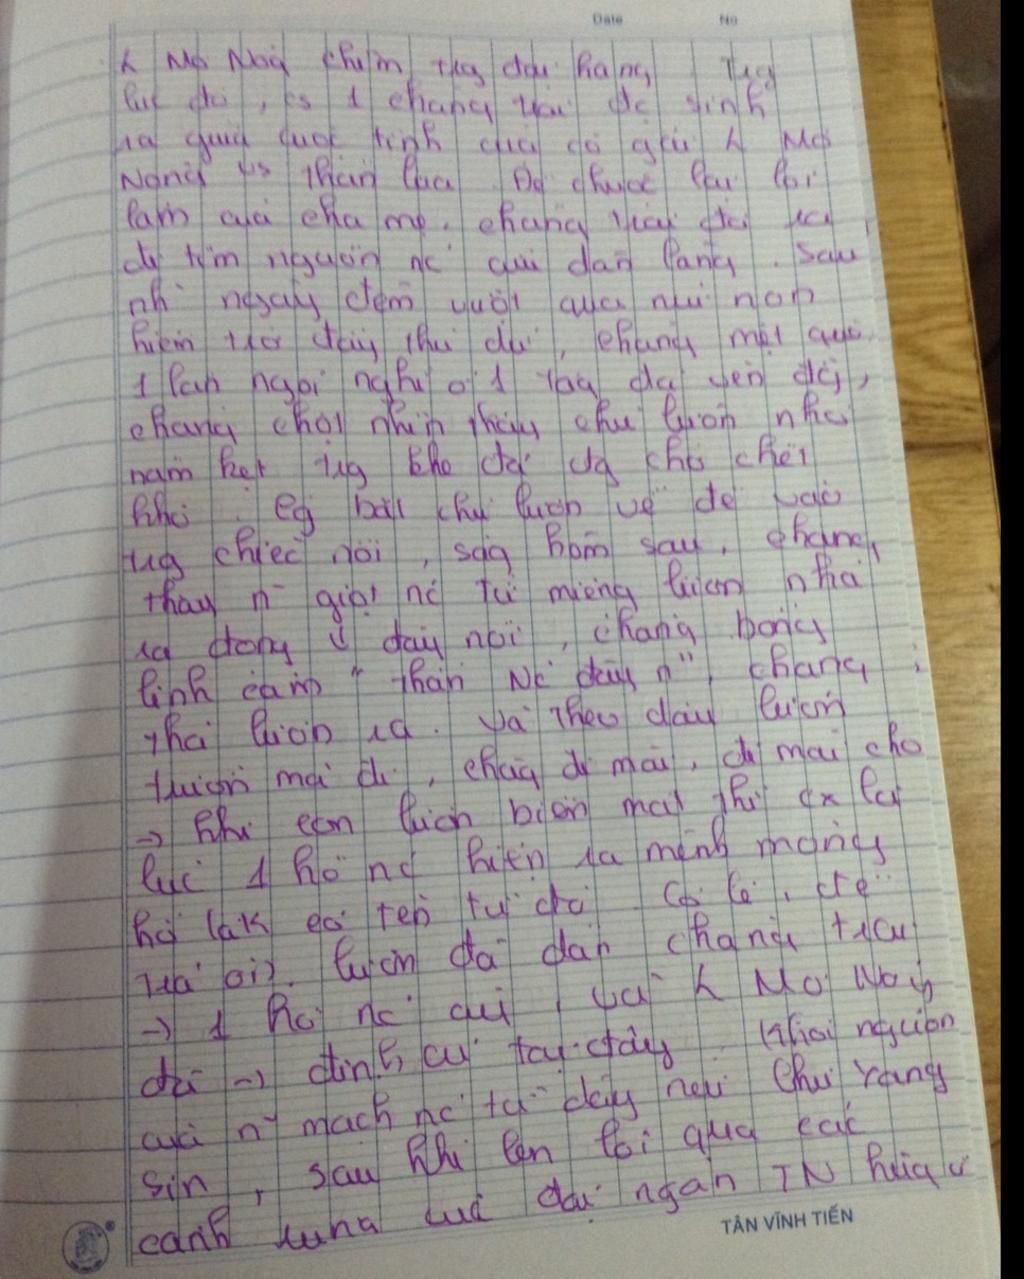 Date No
L Mơ Nông chìm trg đau hàng Trg
lúc đó, có 1 chàng trai đc sinh
ra qua cuộc tình của cô gái L Mơ
Nông vs thần lửa Để chuộc lại lỗi
lầm của cha mẹ, chàng trai đã ra
đi tìm nguồn nc cứu dân làng. Sau
nh ngày đêm vượt qua núi non
hiểm trở đầy thú dữ, chàng mệt quá
1 lần ngồi nghỉ ở 1 tảng đá ven đg,
chàng chợt nhìn thấy chú lươn nhỏ
nằm kẹt trg khe đá đg chờ chết
khô. Cg bắt chú lươn về để vào
trg chiếc nồi, sáng hôm sau, chàng
thấy n giọt nc từ miệng lươn nhả
ra đọng ở đáy nồi, chàng bỗng
linh cảm " thần Nc đây n", chàng
thả lươn ra. Và theo dấu lươn
trườn mãi đi, chàng đi mãi, đi mãi cho
→ khi con lươn biến mất thì cx là
lúc 1 hồ nc hiện ra mênh mông
hồ Lăk có tên từ đó Có lẽ,
lươn đã dẫn chàng trai
→ 1 hồ nc cứu, và L Mơ Nông
đã → định cư tại đây Khởi nguồn
của n mạch nc từ dãy núi Chư Yang
Sin, sau khi len lỏi qua các
cánh rừng của đại ngàn TN hùng vĩ
TÂN VĨNH TIẾN